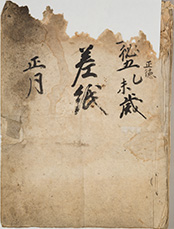 正徳
五乙未歳
差紙
正月